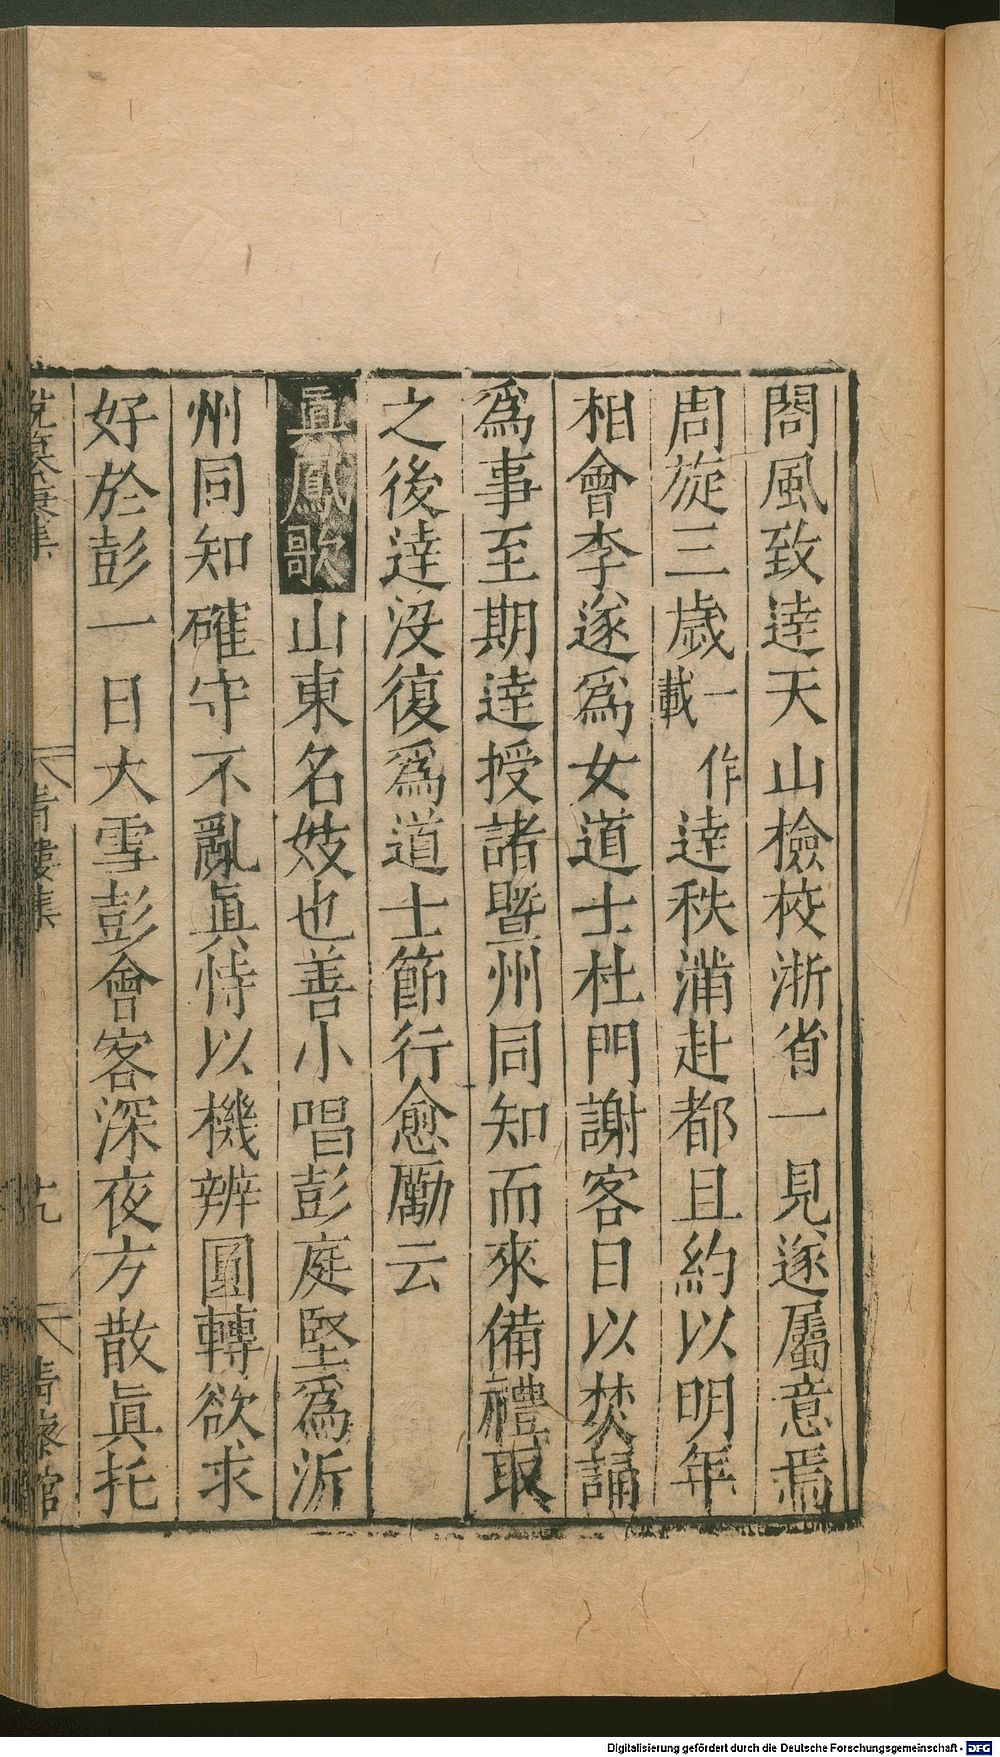 閤風致達天山檢校浙省一見遂屬意焉
周旋三歲一作載達秩滿赴都且約以明年
相會李遂爲女道士杜門謝客日以焚誦
爲事至期達授諸暨州同知而來備禮取
之後達沒復爲道士節行愈勵云
眞鳳歌山東名妓也善小唱彭庭堅爲沂
州同知確守不亂眞恃以機辨圓轉欲求
好於彭一日大雪彭會客深夜方散眞托
青樓集
Digitalisierung gefördert durch die Deutsche Forschungsgemeinschaft - DFG